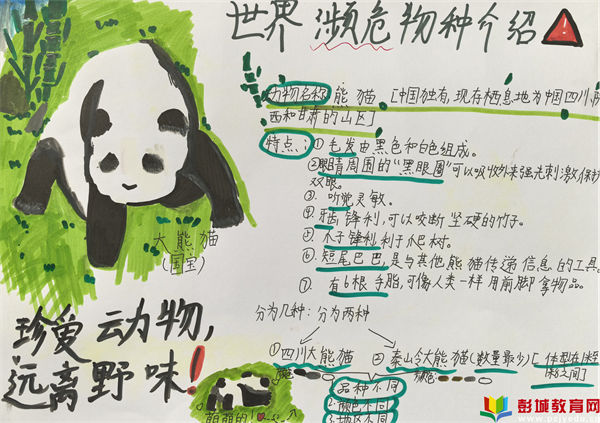 世界濒危物种介绍
动物名称 熊猫 [中国独有,现存栖息地为中国四川,陕
西和甘肃的山区]
特点: ①毛发由黑色和白色组成。
②眼睛周围的“黑眼圈”可以吸收外来强光刺激,保护
双眼。
③.听觉灵敏。
④.牙齿锋利,可以咬断坚硬的竹子。
⑤.爪子锋利利于爬树。
⑥.短尾巴巴,是与其他熊猫传递信息的工具。
⑦.有6根手指,可像人类一样用前脚拿物品。
大熊猫
(国宝)
分为几种:分为两种
①四川大熊猫 ②秦岭大熊猫(数量最少)[体型在
之间]
品种不同
2.颜色不同
3.地区不同
珍爱动物,
远离野味!
萌萌的!
彭城教育网